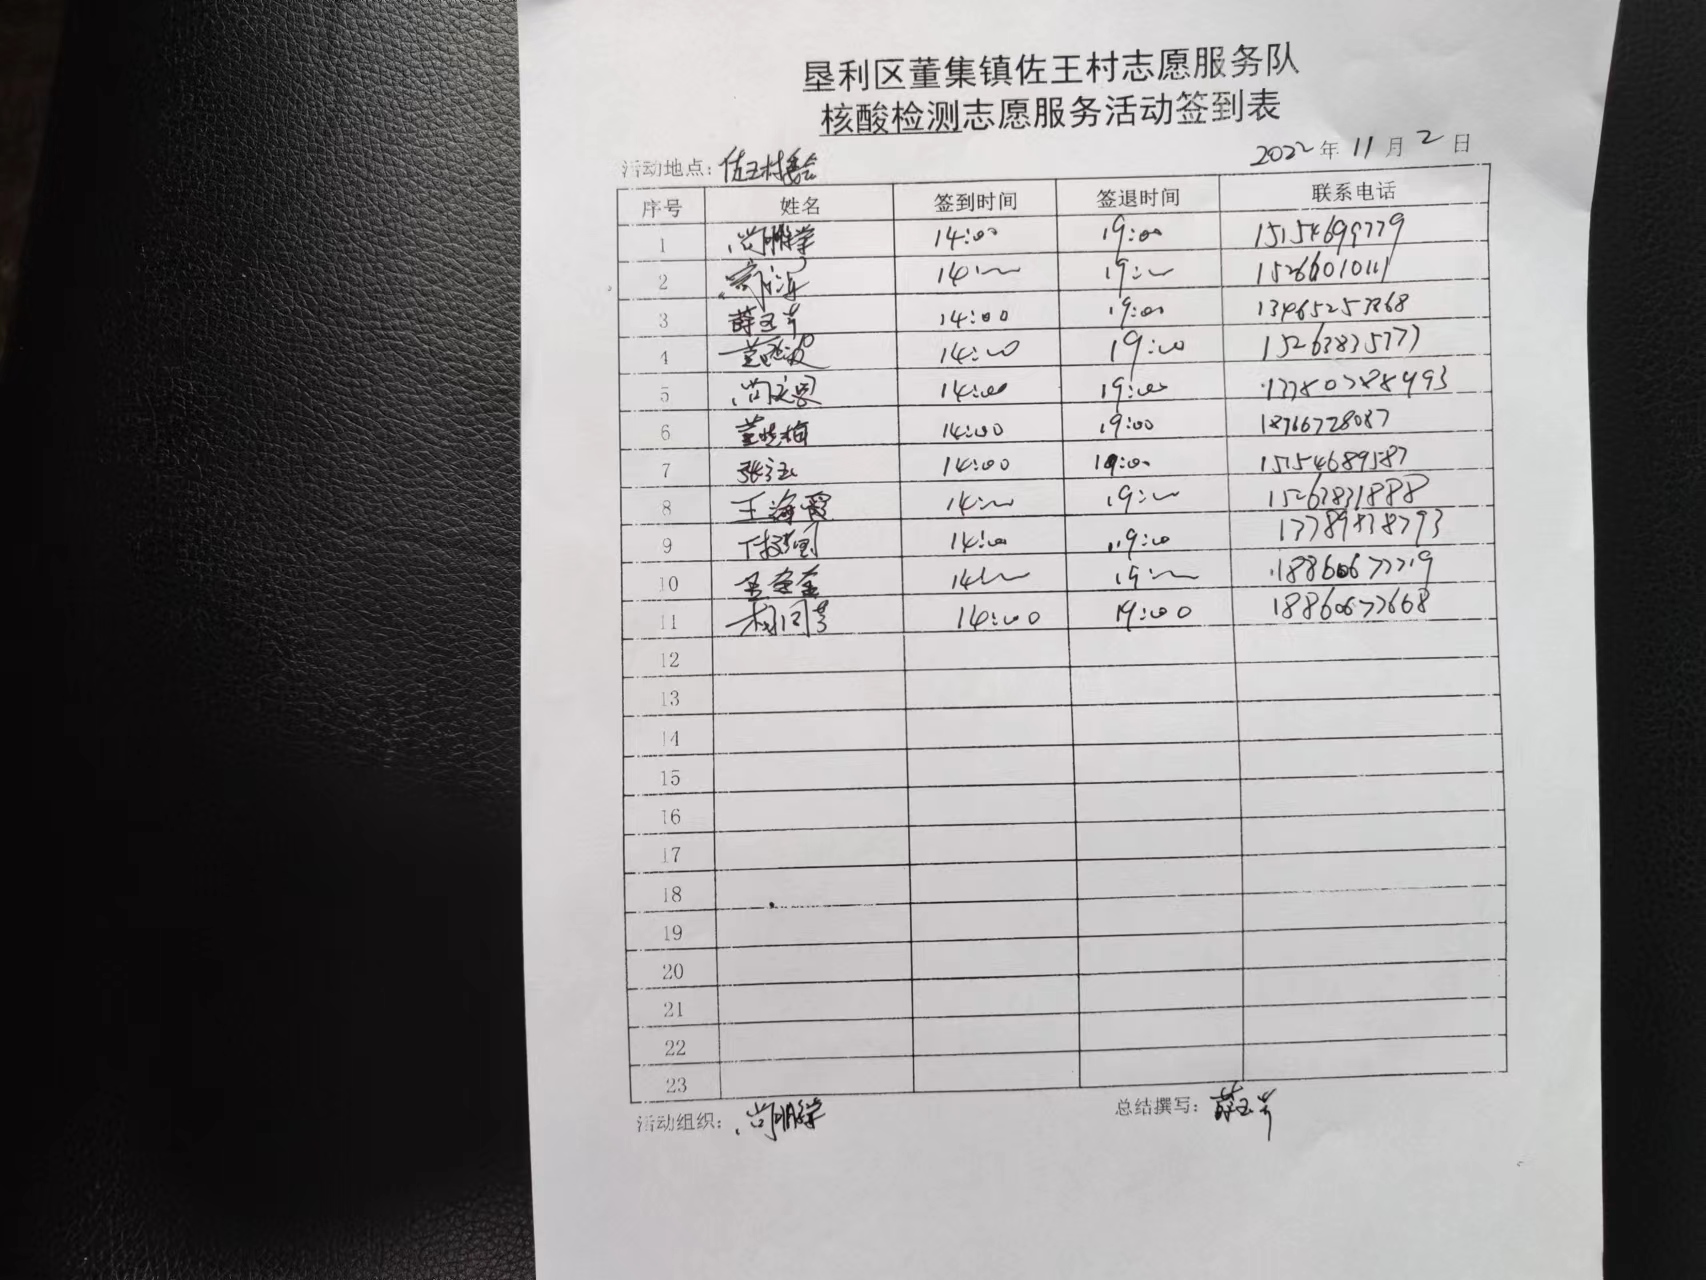 垦利区董集镇佐王村志愿服务队
核酸检测志愿服务活动签到表
活动地点: 佐王村委会 2022年11月2日
序号 姓名 签到时间 签退时间 联系电话
1 尚明学 14:00 19:00 15154699779
2 14:00 19:00 15266010111
3 薛玉芳 14:00 19:00
4 14:00 19:00 15263835777
5 14:00 19:00
6 董晓梅 14:00 19:00 18766728087
7 14:00 19:00 15154689587
8 王海霞 14:00 19:00 15263831888
9 14:00 19:00
10 14:00 19:00
11 14:00 19:00 18860677668
12
13
14
15
16
17
18
19
20
21
22
23
活动组织: 尚明学 总结撰写: 薛玉芳